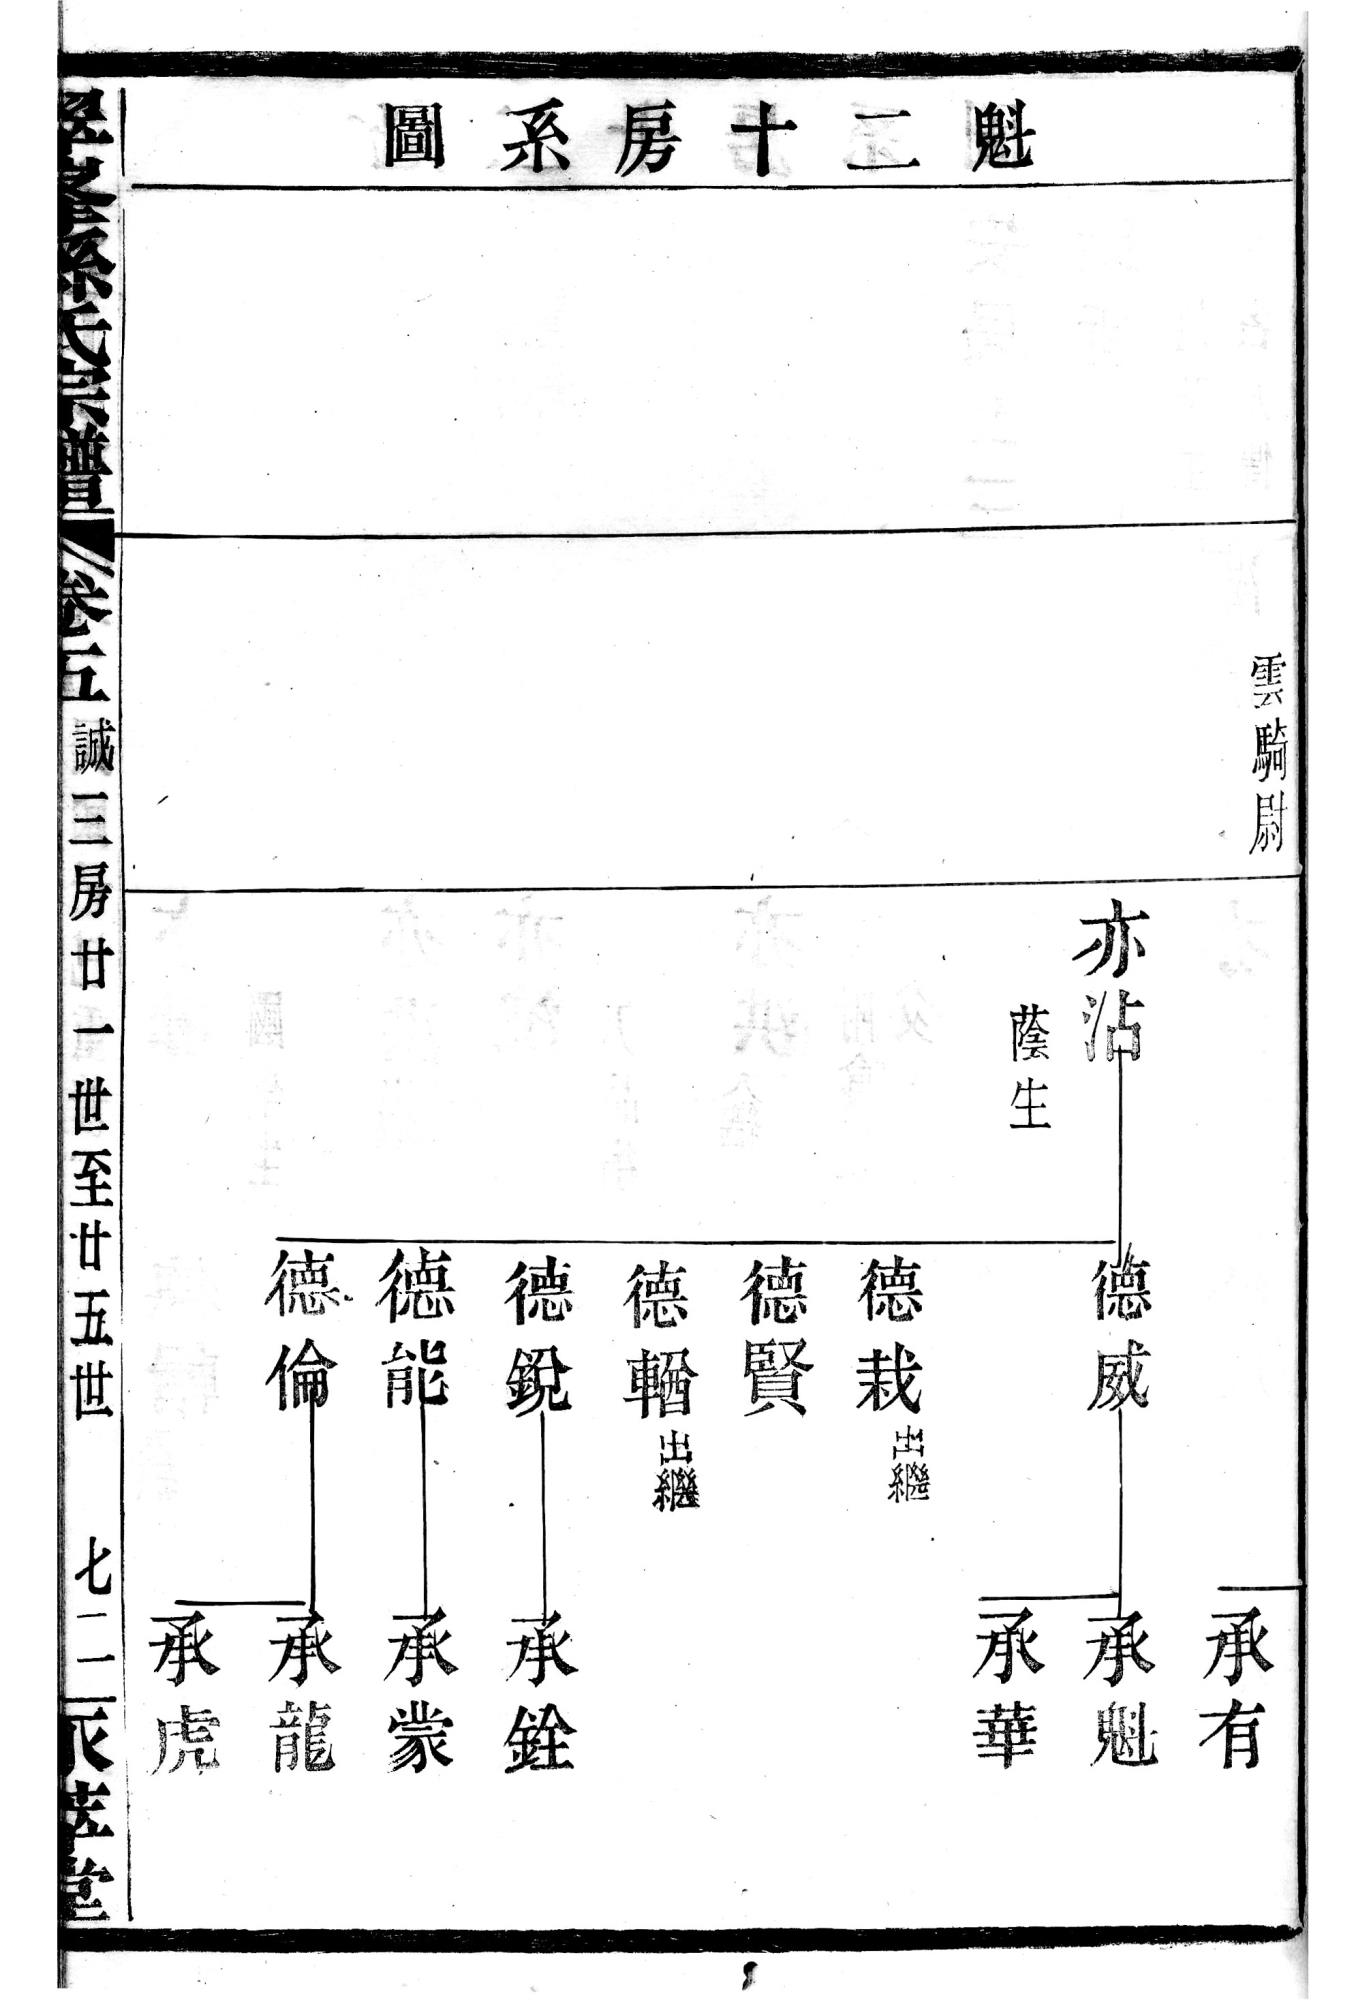 魁二十房系圖
雲騎尉
亦沾
蔭生
德威
德栽 出繼
德賢
德輶 出繼
德銳
德能
德倫
承有
承魁
承華
承銓
承蒙
承龍
承虎
孫氏宗譜
卷五
誠三房廿一世至廿五世
七二
萃堂